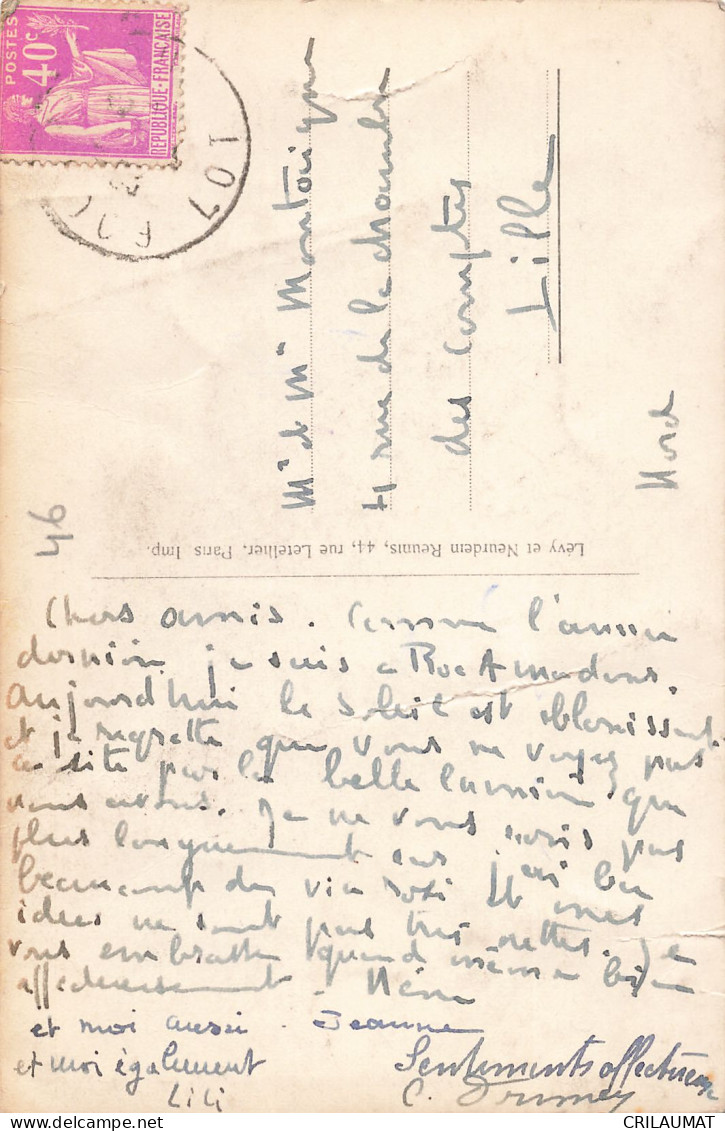 POSTES
40c
REPUBLIQUE FRANÇAISE
LOT
Mr et Mme Montaigne
4 rue de la chambre
des comptes
Lille
Nord
Lévy et Neurdein Réunis, 44, rue Letellier, Paris Imp.
46
Chers amis. Comme l'année
dernière je suis a Roc Amadour.
Aujourd'hui le soleil est éblouissant
et je regrette que vous ne voyez pas
ce site par la belle lumière que
nous avons. Je ne vous écris pas
plus longuement car j'ai bu
beaucoup de vin rosé et mes
idées ne sont pas très nettes. Je
vous embrasse quand même bien
affectueusement.
et moi aussi. Jeanne
et moi également
Lili
Sentiments affectueux
C.
CRILAUMAT